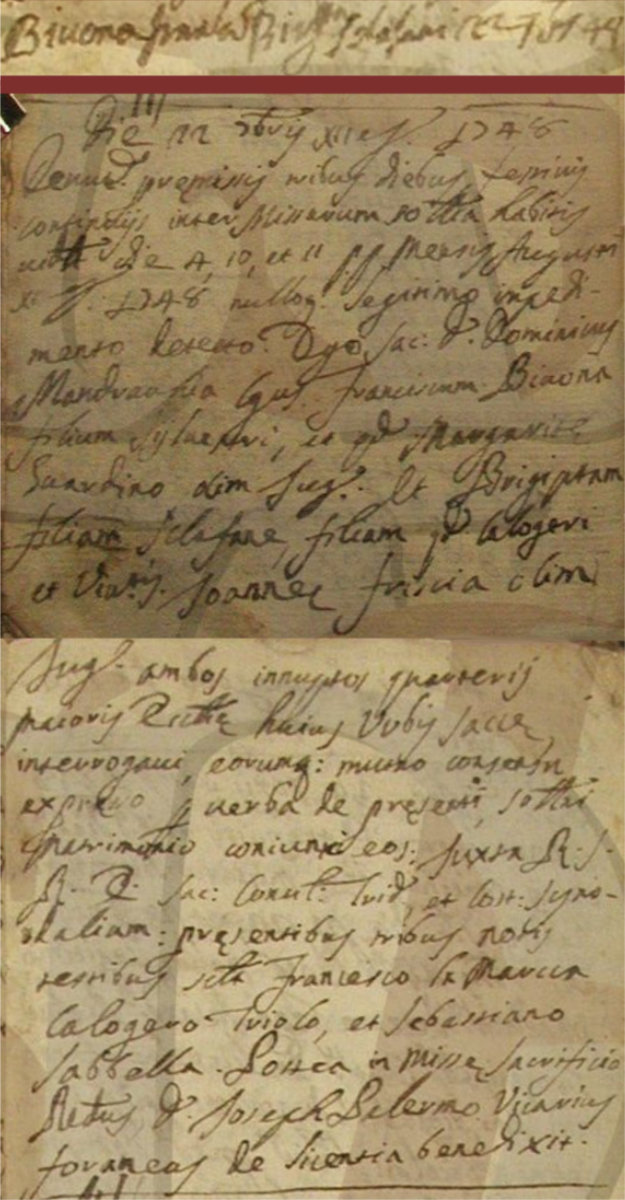 Bivona Francus Brig Sclafani 22 7bris 1748
Die 22 7bris XII Ind. 1748
Denunt. premissis tribus diebus festivis
continuis inter Missarum sollnia habitis
vidt die 4, 10, et 11 pp mensis Augusti
XI Ind. 1748 nulloq. legitimo impedi-
mento detecto. Ego Sac: D. Dominicus
Mandracchia Cgus. Franciscum Bivona
filium Sylvestri, et qd Margarite
Guardino olim Jug. et Brigiptam
filiam Sclafane, filiam qd Calogeri
et Viventis Joanne Friscia olim
Jug. ambos innuptos
maioris Eccltie huius Urbis Sacce
interrogavi, eorumq: mutuo consensu
expresso p verba de presenti, solltri
matrimonio coniunxi eos: Juxta R. S.
R. E. Sac: Concil: Trid, et Cost: Syno-
dalium: presentibus tribus notis
testibus sclt Francisco la Marca
Calogero Triolo, et Sebastiano
Sabbella. Postea in Misse Sacrificio
Retus D. Joseph Palermo Vicarius
foraneus de licentia benedixit.